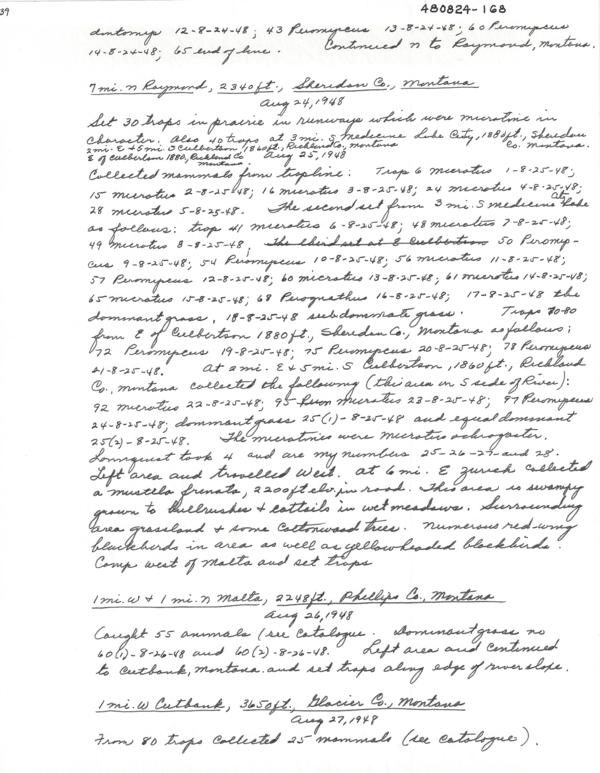 39
480824-168
dontomys 12-8-24-48; 43 Peromyscus 13-8-24-48; 60 Peromyscus
14-8-24-48; 65 end of line. Continued N to Raymond, Montana.
7 mi. N Raymond, 2340 ft., Sheridan Co., Montana
Aug 24, 1948
Set 30 traps in prairie in runways which were microtine in
character. Also 40 traps at 3 mi. S Medicine Lake City, 1880 ft., Sheridan
Co. Montana.
2 mi. E + 5 mi. S Culbertson, 1860 ft., Richland Co., Montana
E of Culbertson 1880, Richland Co. Montana
Aug 25, 1948
Collected mammals from trapline: Trap 6 microtus 1-8-25-48;
15 microtus 2-8-25-48; 16 microtus 3-8-25-48; 24 microtus 4-8-25-48;
28 microtus 5-8-25-48. The second set from 3 mi. S Medicine Lake City
as follows: trap 41 microtus 6-8-25-48; 48 microtus 7-8-25-48;
49 microtus 8-8-25-48; The third set at E Culbertson 50 Peromys-
cus 9-8-25-48; 54 Peromyscus 10-8-25-48; 56 microtus 11-8-25-48;
57 Peromyscus 12-8-25-48; 60 microtus 13-8-25-48; 61 microtus 14-8-25-48;
65 microtus 15-8-25-48; 68 Perognathus 16-8-25-48; 17-8-25-48 the
dominant grass, 18-8-25-48 subdominate grass. Traps 70-80
from E of Culbertson 1880 ft., Sheridan Co., Montana as follows;
72 Peromyscus 19-8-25-48; 75 Peromyscus 20-8-25-48; 78 Peromyscus
21-8-25-48. At 2 mi. E + 5 mi. S Culbertson, 1860 ft., Richland
Co., Montana collected the following (this area on S side of River):
92 microtus 22-8-25-48; 95 microtus 23-8-25-48; 97 Peromyscus
24-8-25-48; dominant grass 25(1)-8-25-48 and equal dominant
25(2)-8-25-48. The microtines were microtus ochrogaster.
Lonnquist took 4 and are my numbers 25-26-27 and 28.
Left area and travelled West. At 6 mi. E Zurich collected
a mustela frenata, 2200 ft elv. in road. This area is swampy
grown to bullrushes + cattails in wet meadows. Surrounding
area grassland + some cottonwood trees. Numerous red-wing
blackbirds in area as well as yellowheaded blackbirds.
Camp west of Malta and set traps
1 mi. W + 1 mi. N Malta, 2248 ft., Phillips Co., Montana
Aug 26, 1948
Caught 55 animals (see catalogue. Dominant grass no
60(1)-8-26-48 and 60(2)-8-26-48. Left area and continued
to Cutbank, Montana. and set traps along edge of river slope.
1 mi. W Cutbank, 3650 ft., Glacier Co., Montana
Aug 27, 1948
From 80 traps collected 25 mammals (see catalogue).